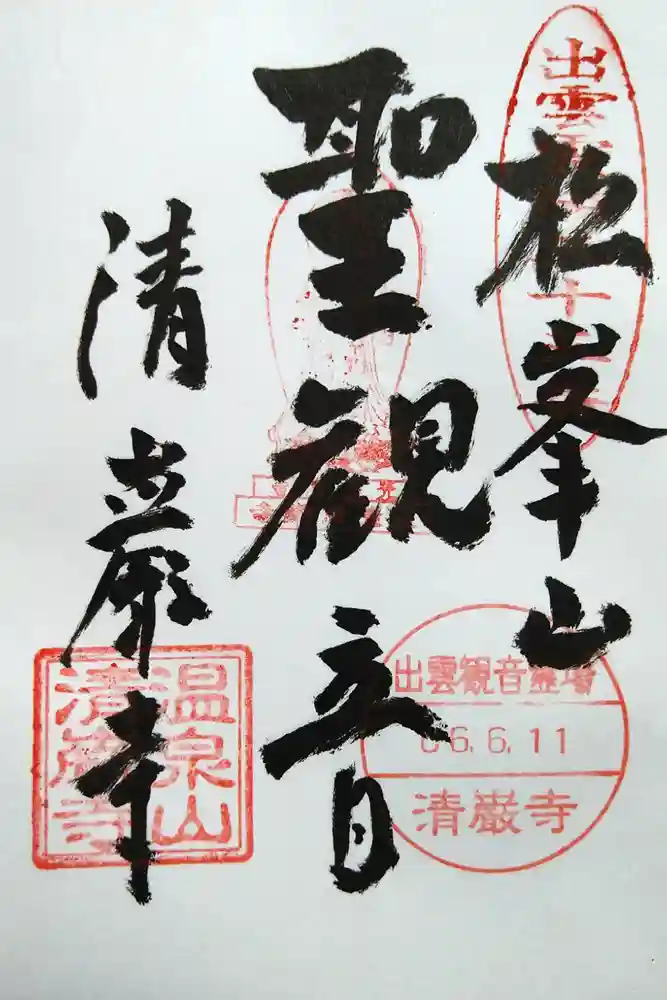 松峯山
聖観音
清巖寺
出雲
十
出雲観音霊場
06.6.11
清巌寺
温泉山
清巌寺